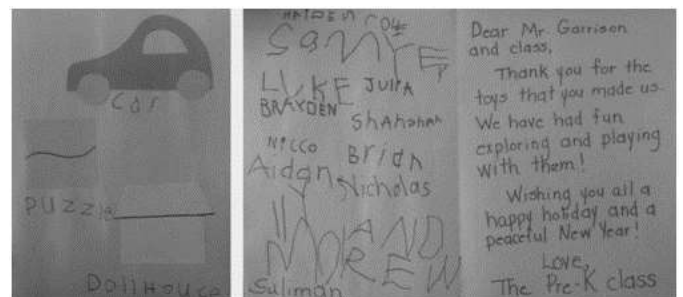 Car
PUZZle
DollHouse
HAYDEN COLE
SAMYE
LUKE JULIA
BRAYDEN
ShAhanAh
NICCO Brian
Aidan Nicholas
ANDREW
Suliman
Dear Mr. Garrison
and class,
Thank you for the
toys that you made us.
We have had fun
exploring and playing
with them!
Wishing you all a
happy holiday and a
peaceful New Year!
Love,
The Pre-K class